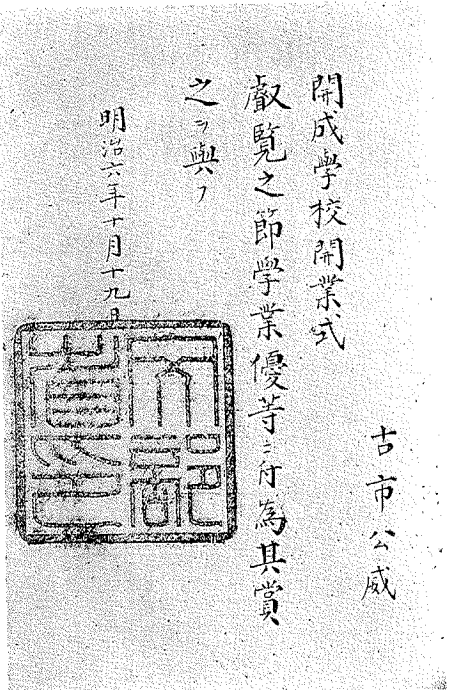 古市公威
開成學校開業式
叡覧之節學業優等ニ付為其賞
之ヲ與フ
明治六年十月十九日
文部省印